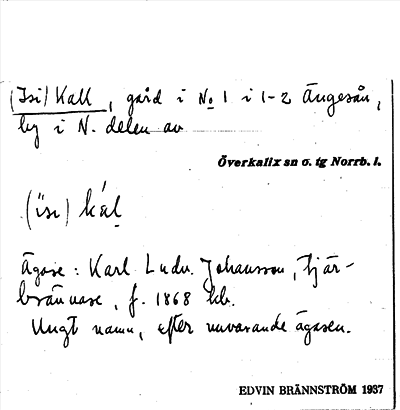 (Isi) Kall, gård i No 1 i 1-2 Ängesån,
by i N. delen av
Överkalix sn o. tg Norrb. l.
(ïsi) kál
Ägare: Karl Ludv. Johansson, tjär-
brännare, f. 1868 hb.
Ungt namn, efter nuvarande ägaren.
EDVIN BRÄNNSTRÖM 1937